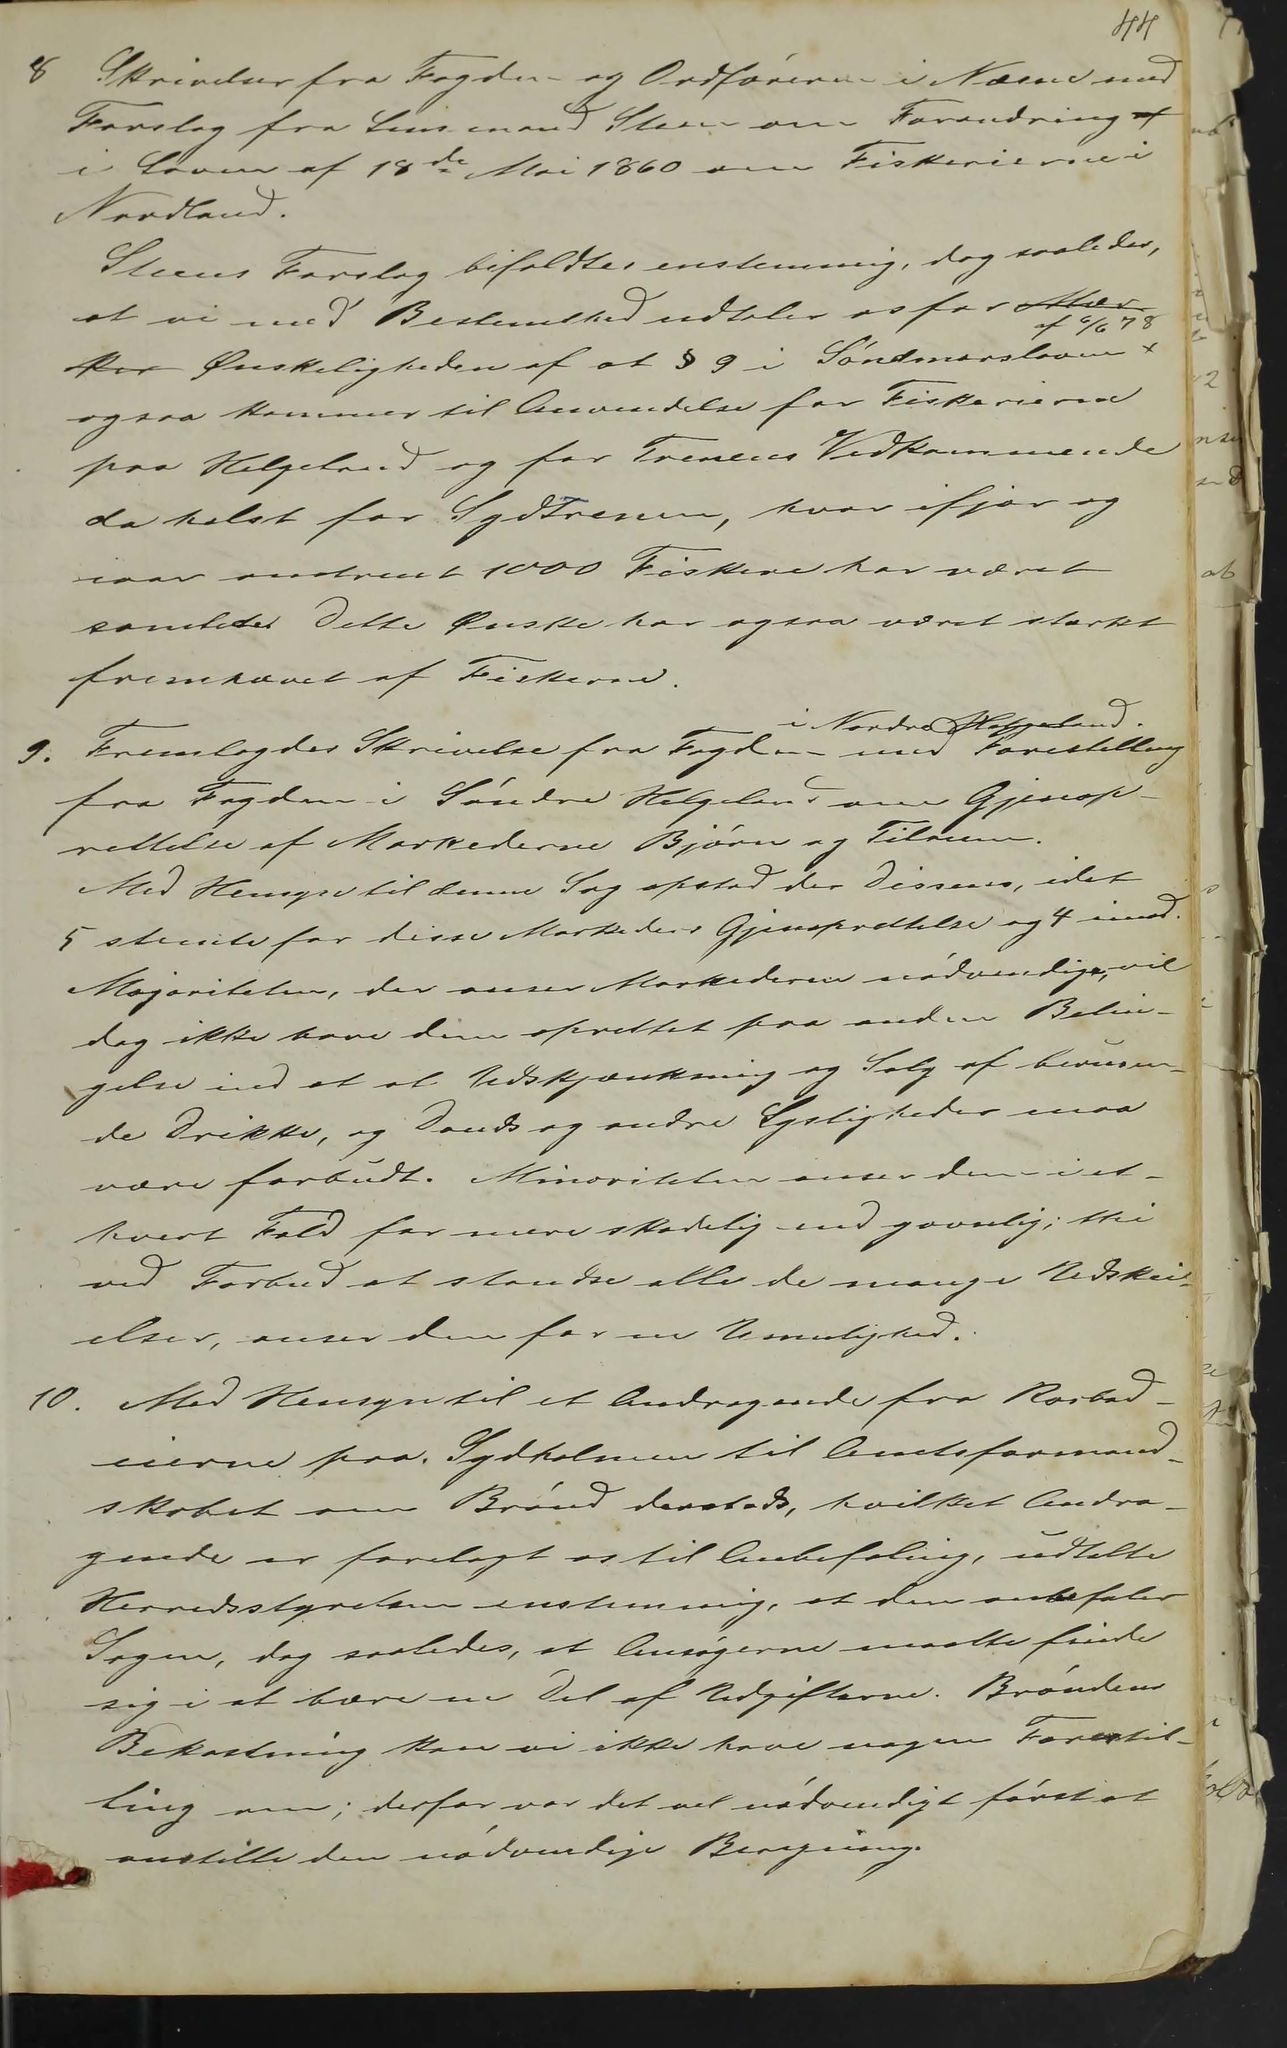 44
8 Skrivelser fra Fogden og Ordføreren i Næsne med
Forslag fra Lensmand Steen om Forandring af
i Loven af 18de Mai 1860 om Fiskerierne i
Nordland.
Steens Forslag bifaldtes enstemmig, dog saaledes,
at vi med Bestemthed udtaler os for
af 6/6 78
Ønskeligheden af at § 9 i Söndmørsloven x
ogsaa kommer til Anvendelse for Fiskerierne
paa Helgeland og for Trenens Vedkommende
da helst for Sydtrenen, hvor ifjor og
iaar omtrent 1000 Fiskere har været
samlede Dette Ønske har ogsaa været stærkt
fremhævet af Fiskerne.
i Nordre Helgeland.
9. Fremlagdes Skrivelse fra Fogden med Forestilling
fra Fogden i Söndre Helgeland om Gjenop-
rettelse af Markederne Bjørn og Tilrem.
Med Hensyn til denne Sag opstod der Dissens, idet
5 stemte for disse Markeders Gjenoprettelse og 4 imod.
Majoriteten, der anser Markederne nödvendige, vil
dog ikke have dem oprettet paa anden Betin-
gelse end at al Udskjænkning og Salg af berusen-
de Drikke, og Dands og andre Lystigheder maa
være forbudt. Minoriteten anser dem i et-
hvert Fald for mere skadelig end gavnlig; thi
ved Forbud at standse alle de mange Udskei-
elser, anser den for en Umulighed.
10. Med Hensyn til et Andragende fra Rorbod-
eierne paa Sydholmen til Amtsformand-
skabet om Brönd dersteds, hvilket Andra-
gende er forelagt os til Anbefaling, udtalte
Herredsstyrelsen enstemmig, at den anbefaler
Sagen, dog saaledes, at Ansögerne maatte finde
sig i at bære en Del af Udgifterne. Bröndens
Bekostning kan vi ikke have nogen Forestil-
ling om; derfor var det vel nödvendigt först at
anstille den nödvendige Beregning.